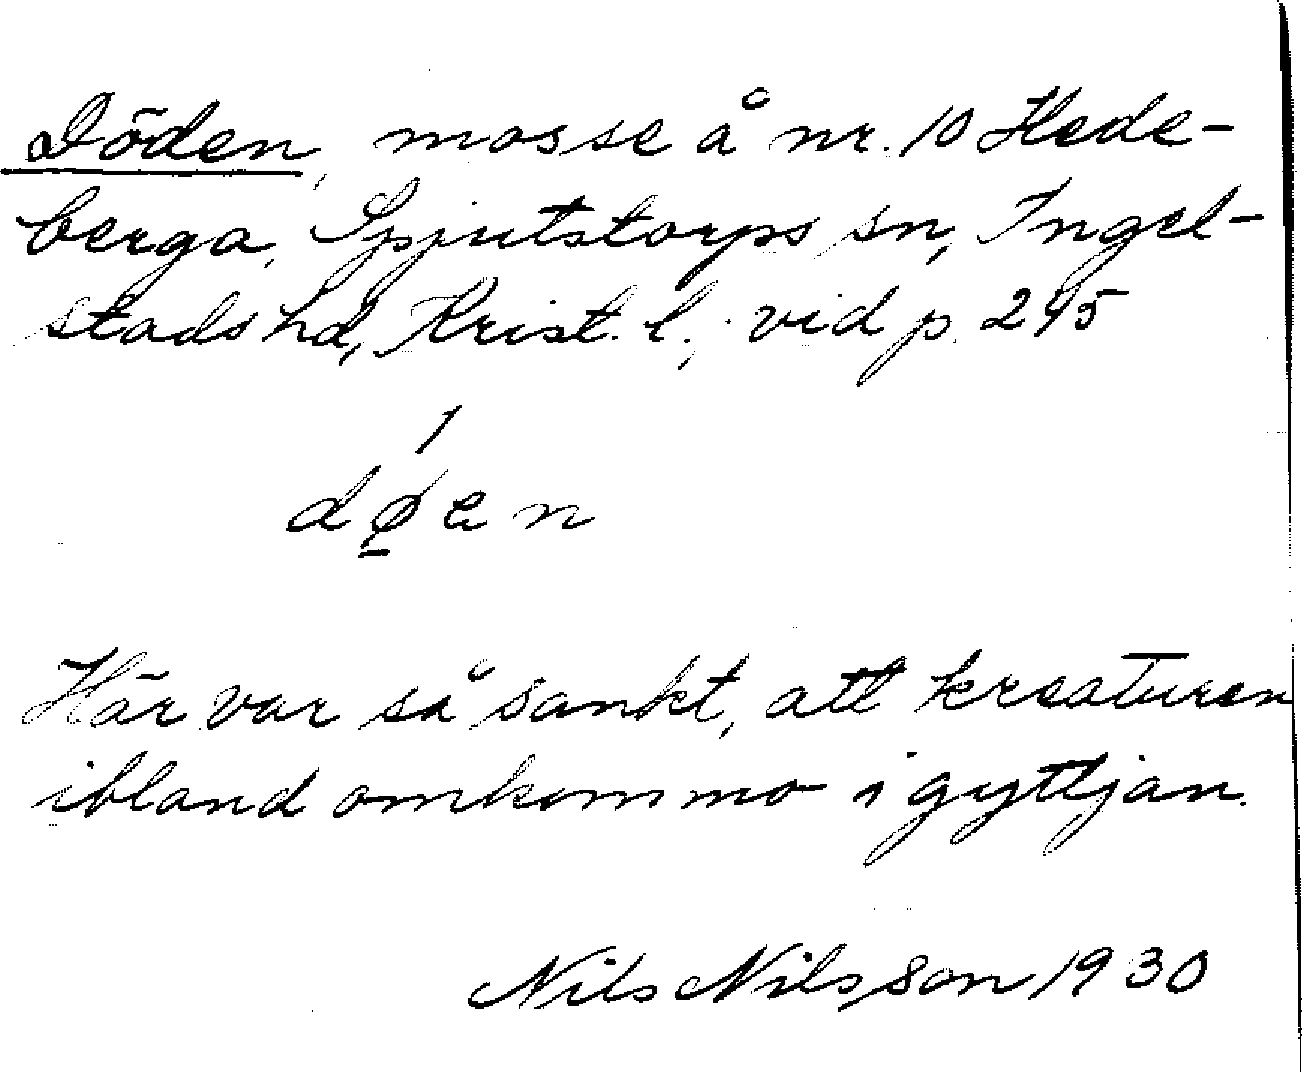 Döden, mosse å nr. 10 Hede-
berga, Spjutstorps sn, Ingel-
stads hd, Krist. l.; vid p. 245
døen
Här var så sankt, att kreaturen
ibland omkommo i gyttjan.
Nils Nilsson 1930